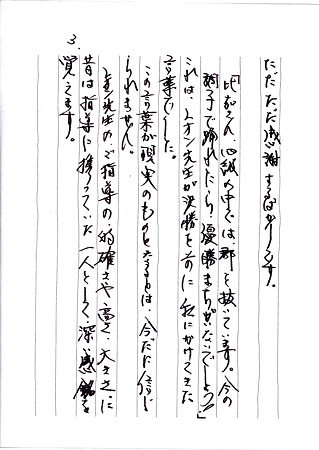 ただただ感謝するばかりです。
「比嘉さん、心級の中では、群を抜いています。今の
調子で踊れたら、優勝まちがいないでしょう。」
これは、レオン先生が決勝を前に私にかけてきた
言葉でした。
この言葉が現実のものとなるとは、今だに信じ
られません。
先生の、ご指導の的確さや高さ、大きさに
昔は指導に携っていた一人として、深い感銘を
覚えます。
3.